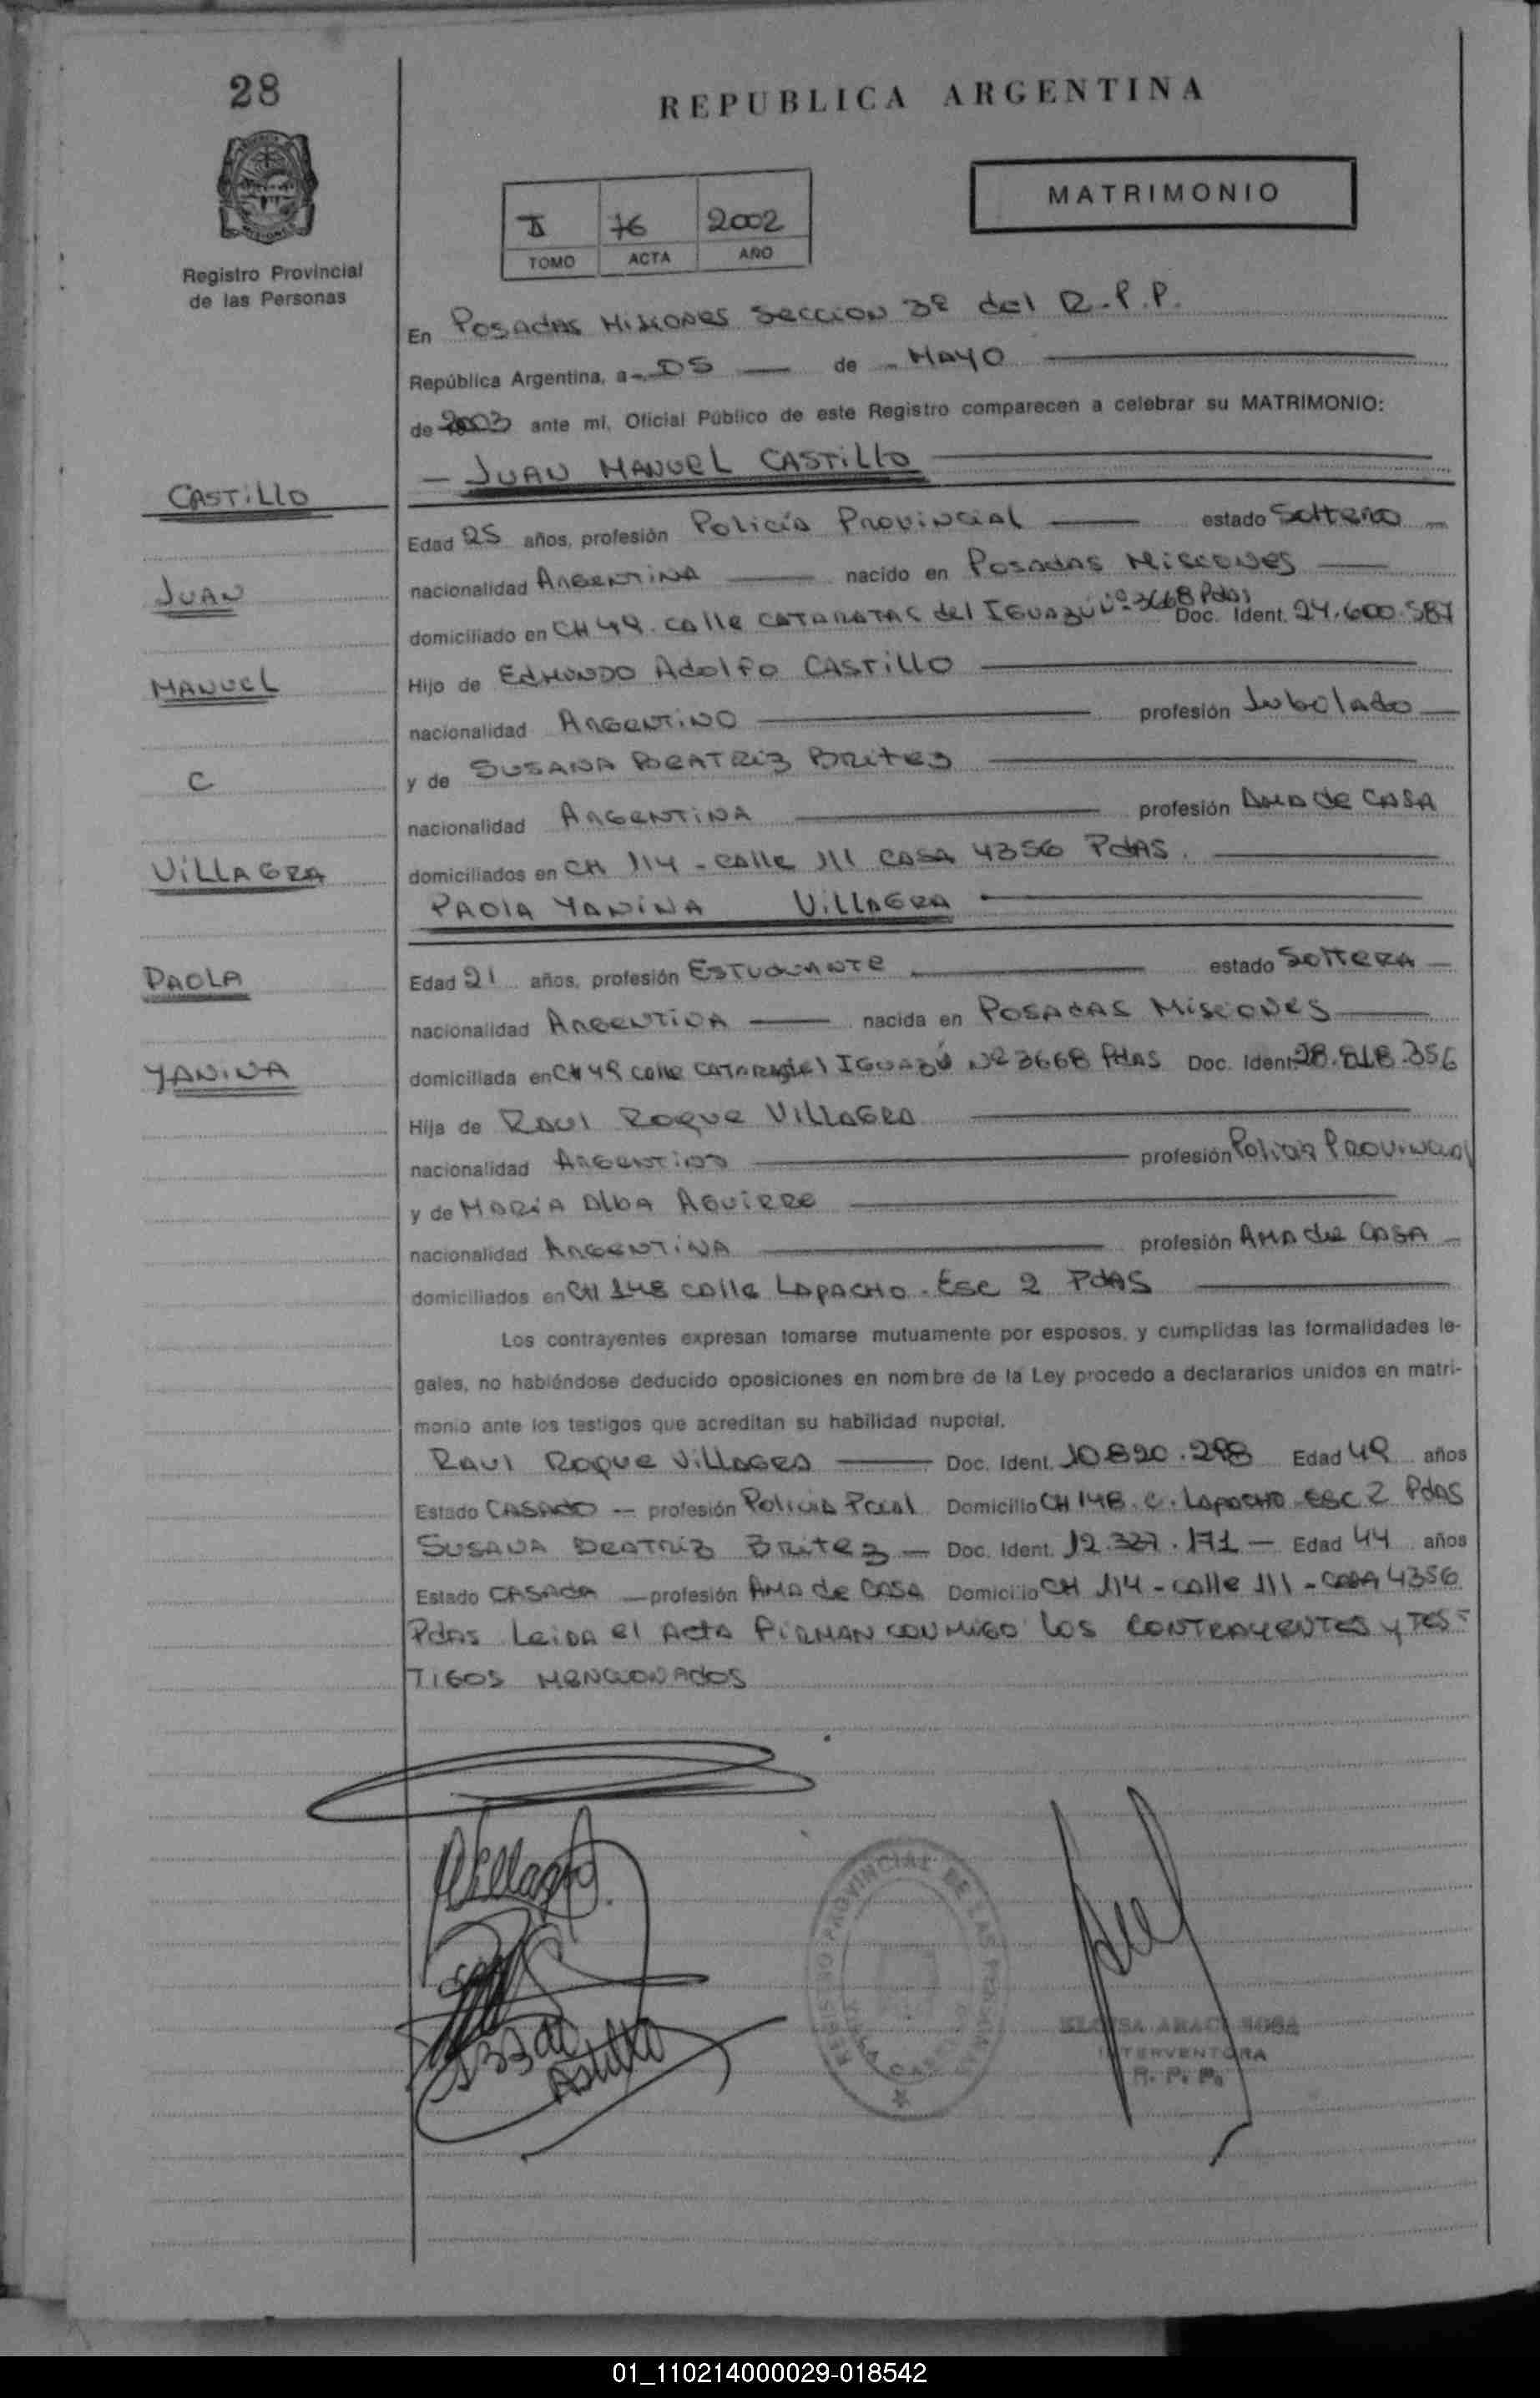 28
REPUBLICA ARGENTINA
MATRIMONIO
II 76 2002
TOMO ACTA AÑO
Registro Provincial
de las Personas
En Posadas Misiones Seccion 3ª del R.P.P.
República Argentina, a 05 de Mayo
de ante mi, Oficial Público de este Registro comparecen a celebrar su MATRIMONIO:
JUAN MANUEL CASTILLO
CASTILLO
Edad 25 años, profesión Policía Provincial estado Soltero
JUAN
nacionalidad Argentina nacido en Posadas Misiones
domiciliado en CH 49. calle CATARATAS del IGUAZÚ Nº 3668 Pdas Doc. Ident. 24.600.587
MANUEL
Hijo de EDMUNDO Adolfo CASTILLO
nacionalidad Argentino profesión Jubilado
C
y de SUSANA BEATRIZ BRITEZ
nacionalidad ARGENTINA profesión Ama de CASA
VILLAGRA
domiciliados en CH 114 - calle 111 CASA 4356 PdAS.
PAOLA YANINA VILLAGRA
PAOLA
Edad 21 años, profesión Estudiante estado Soltera
nacionalidad ARGENTINA nacida en POSADAS Misiones
YANINA
domiciliada en CH 49 calle del IGUAZÚ Nº 3668 PdAS Doc. Ident. 28.818.356
Hija de RAUL ROQUE VILLAGRA
nacionalidad Argentino profesión Policía Provincial
y de MARIA Alba AGUIRRE
nacionalidad ARGENTINA profesión AMA de CASA
domiciliados en CH 148 calle LAPACHO. Esc 2 PdAS
Los contrayentes expresan tomarse mutuamente por esposos, y cumplidas las formalidades le-
gales, no habiéndose deducido oposiciones en nombre de la Ley procedo a declararlos unidos en matri-
monio ante los testigos que acreditan su habilidad nupcial.
RAUL ROQUE VILLAGRA Doc. Ident. 10.820.298 Edad 49 años
Estado CASADO profesión Policia Pcial Domicilio CH 148. C. Lapacho Esc 2 PdAS
SUSANA BEATRIZ BRITEZ Doc. Ident. 12.327.171 Edad 44 años
Estado CASADA profesión AMA de CASA Domicilio CH 114 - calle 111 - CASA 4356
Pdas Leida el Acta FIRMAN CONMIGO los CONTRAYENTES y TES-
TIGOS MENCIONADOS
Villagra
REGISTRO PROVINCIAL DE LAS PERSONAS
de
Castillo
ELOISA ARACI SOSA
INTERVENTORA
R. P. P.
01_110214000029-018542